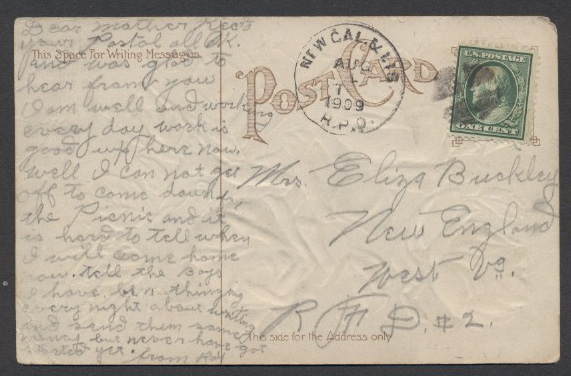 Dear Mother Rec'd
your Postal all O.K.
This Space For Writing Messages
and was glad to
hear from you
I am well and working
every day work is
good up here now.
well I can not get
off to come down to
the Picnic and it
is hard to tell when
I will come home
now. tell the Boys
I have been thinking
every night about writing
and send them some
money but never have got
started yet.
from Roy
POST CARD
NEW CAL & LIS
AUG
7
1909
R.P.O.
U.S. POSTAGE
ONE CENT
Mrs. Eliza Buckley
New England
West Va.
R F D. #2.
This side for the Address only